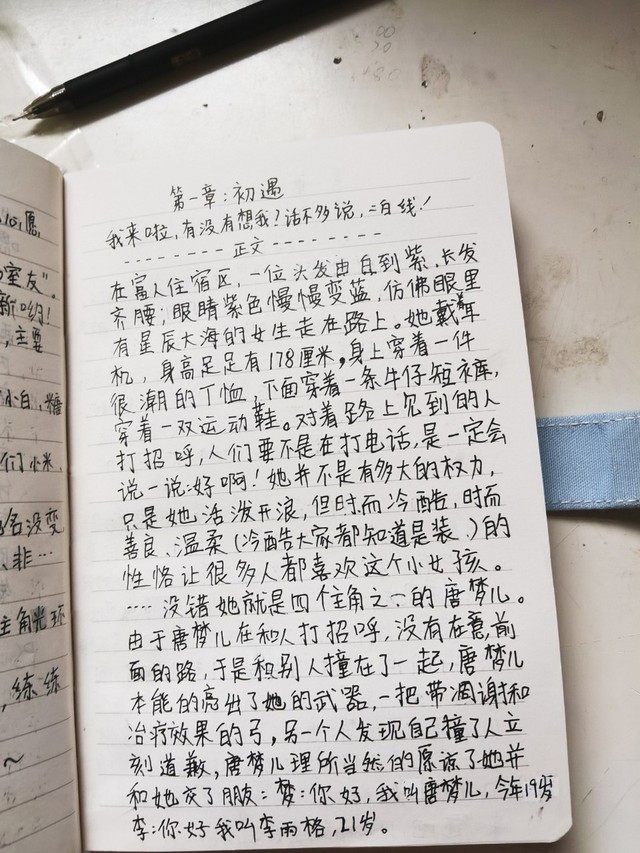 心,愿,
室友”。
新哟!
,主要
小白,糖
们小米,
名没变
、非…
主角光环
,练练
~
第一章:初遇
我来啦,有没有想我?话不多说,二白线!
--------正文--------
在富人住宿区,一位头发由白到紫,长发
齐腰;眼睛紫色慢慢变蓝,仿佛眼里
有星辰大海的女生走在路上。她戴着耳
机,身高足足有178厘米,身上穿着一件
很潮的T恤,下面穿着一条牛仔短裤,
穿着一双运动鞋。对着路上见到的人
打招呼,人们要不是在打电话,是一定会
说一说:好啊!她并不是有多大的权力,
只是她活泼开浪,但时而冷酷,时而
善良、温柔(冷酷大家都知道是装、)的
性恪让很多人都喜欢这个小女孩。
····没错她就是四个主角之一的唐梦儿。
由于唐梦儿在和人打招呼,没有在意前
面的路,于是积别人撞在了一起,唐梦儿
本能的亮出了她的武器,一把带凋谢和
治疗效果的弓,另一个人发现自己撞了人立
刻道歉,唐梦儿理所当然的原谅了她并
和她交了朋友:梦:你好,我叫唐梦儿,今年19岁
李:你好我叫李雨格,21岁。